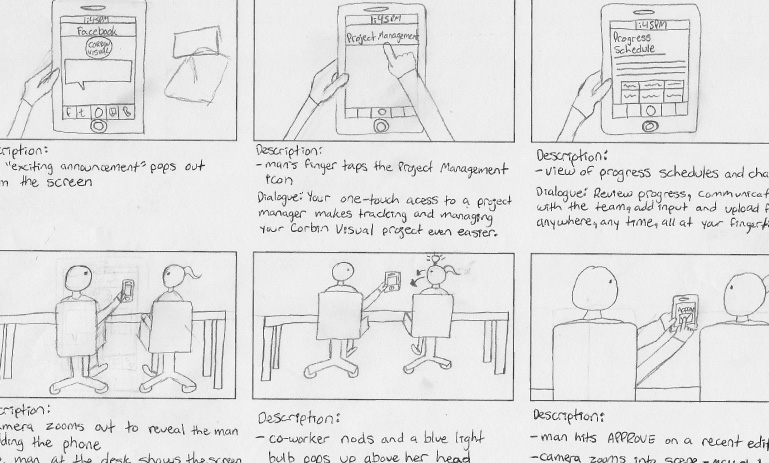 1:45PM
Facebook
CORBIN
VISUAL
f t
"exciting announcement" pops out
the screen
1:45PM
Project Management
Description:
- man's finger taps the Project Management
icon
Dialogue: Your one-touch acess to a project
manager makes tracking and managing
your Corbin Visual project even easier.
1:45PM
Progress
Schedule
Description:
- view of progress schedules and cha
Dialogue: Review progress, communicat
with the team, add input and upload f
anywhere, any time, all at your fingert
cription:
mera zooms out to reveal the man
ding the phone
man at the desk shows the screen
Description:
- co-worker nods and a blue light
bulb pops up above her head
Description:
- man hits APPROVE on a recent edit
- camera zooms into scene